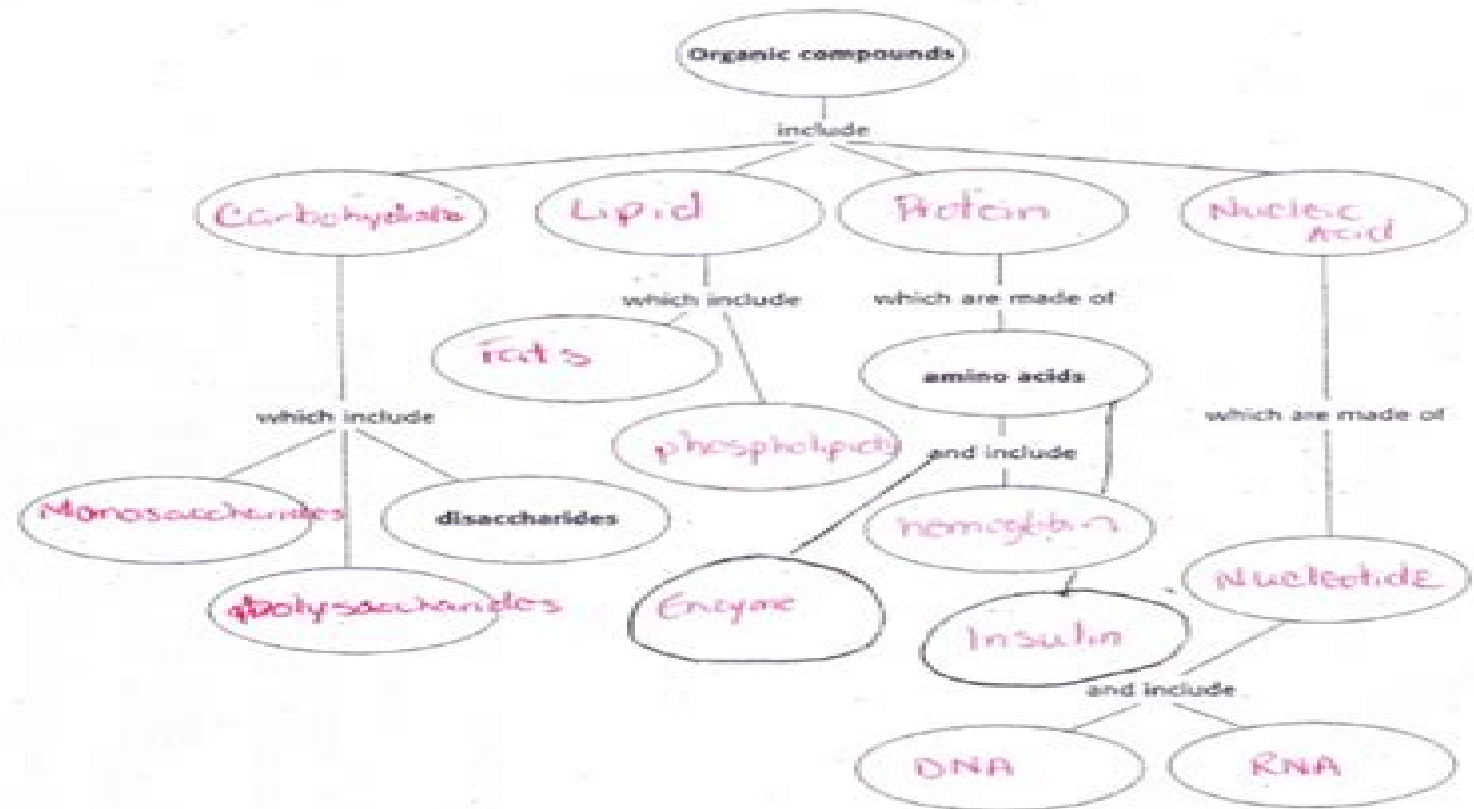 Organic compounds
include
Carbohydrate
Lipid
Protein
Nucleic
Acid
which include
which are made of
Fats
amino acids
which include
which are made of
phospholipids
and include
Monosaccharides
disaccharides
hemoglobin
Polysaccharides
Enzyme
Nucleotide
Insulin
and include
DNA
RNA